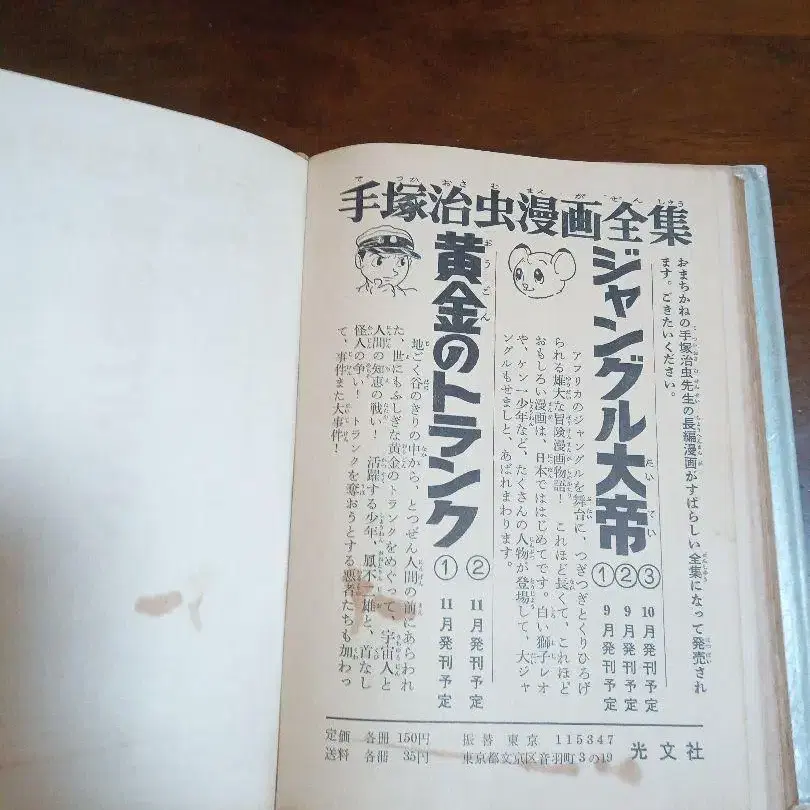 手塚治虫漫画全集
おまちかねの手塚治虫先生の長編漫画がすばらしい全集になって発売され
ます。ごきたいください。
ジャングル大帝
①9月発刊予定
②9月発刊予定
③10月発刊予定
アフリカのジャングルを舞台に、つぎつぎとくりひろげ
られる雄大な冒険漫画物語! これほど長くて、これほど
おもしろい漫画は、日本でははじめてです。白い獅子レオ
や、ケン一少年など、たくさんの人物が登場して、大ジャ
ングルもせましと、あばれまわります。
黄金のトランク
①11月発刊予定
②11月発刊予定
地ごく谷のきりの中から、とつぜん人間の前にあらわれ
た、世にもふしぎな黄金のトランクをめぐって、宇宙人と
人間の知恵の戦い! 活躍する少年、鳳不二雄と、首なし
怪人の争い! トランクを奪おうとする悪者たちも加わっ
て、事件また大事件!
定価 各冊 150円 振替 東京 115347
送料 各冊 35円 東京都文京区音羽町3の19
光文社